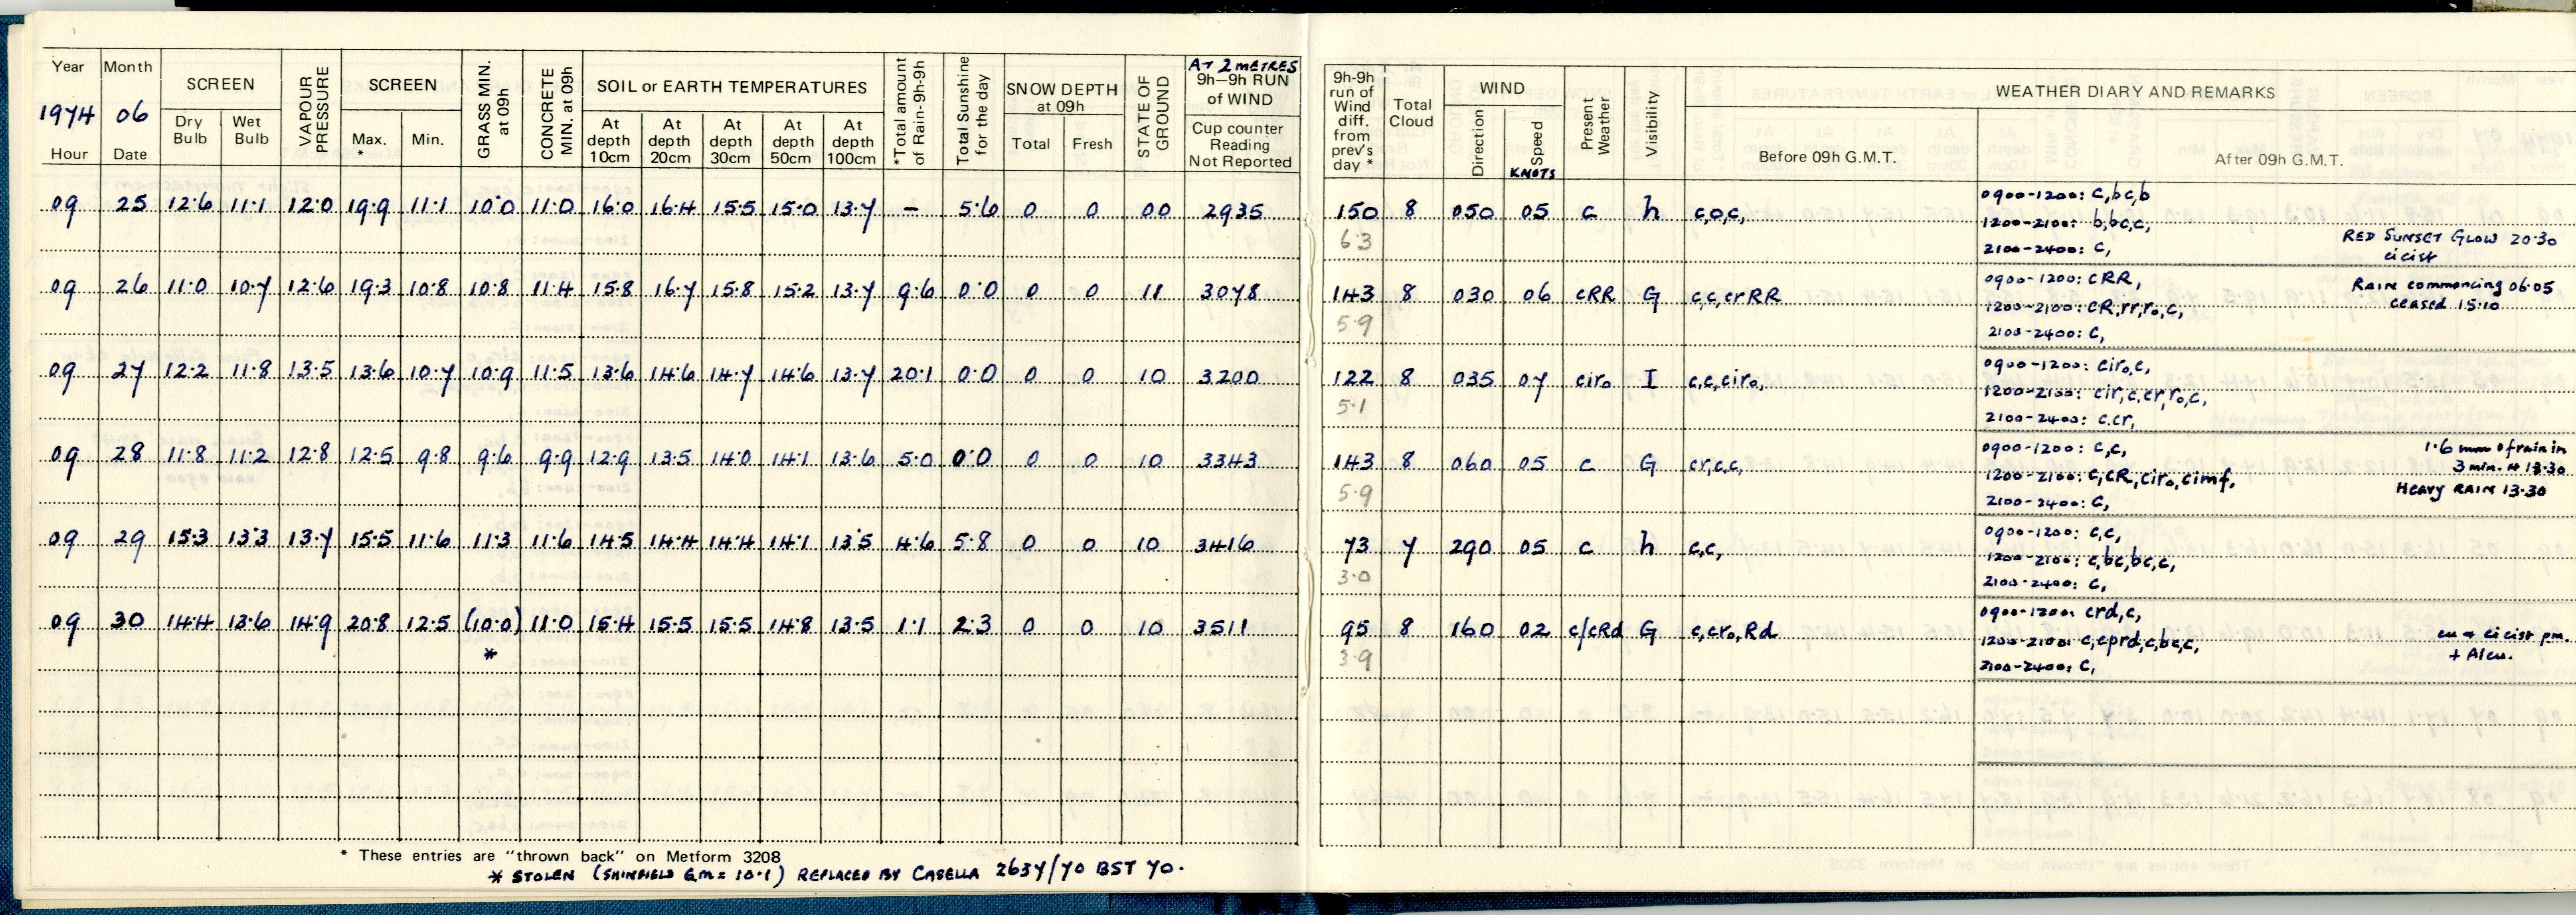 Year Month SCREEN VAPOUR PRESSURE SCREEN GRASS MIN. at 09h CONCRETE MIN. at 09h SOIL or EARTH TEMPERATURES *Total amount of Rain-9h-9h Total Sunshine for the day SNOW DEPTH at 09h STATE OF GROUND AT 2 METRES 9h—9h RUN of WIND
1974 06 Dry Bulb Wet Bulb Max. * Min. At depth 10cm At depth 20cm At depth 30cm At depth 50cm At depth 100cm Total Fresh Cup counter Reading Not Reported
Hour Date
9h-9h run of Wind diff. from prev's day * Total Cloud WIND Direction Speed KNOTS Present Weather Visibility WEATHER DIARY AND REMARKS
Before 09h G.M.T. After 09h G.M.T.
09 25 12.6 11.1 12.0 19.9 11.1 10.0 11.0 16.0 16.4 15.5 15.0 13.7 – 5.6 0 0 00 2935 150 8 050 05 c h c,o,c, 0900-1200: C,bc,b
6.3 1200-2100: b,bc,c,
2100-2400: C, RED SUNSET GLOW 20.30
cicist
09 26 11.0 10.7 12.6 19.3 10.8 10.8 11.4 15.8 16.7 15.8 15.2 13.7 9.6 0.0 0 0 11 3078 143 8 030 06 cRR G c,c,crRR 0900-1200: CRR, RAIN commencing 06.05
5.9 1200-2100: CR,rr,r₀,c, ceased 15.10
2100-2400: C,
09 27 12.2 11.8 13.5 13.6 10.7 10.9 11.5 13.6 14.6 14.7 14.6 13.7 20.1 0.0 0 0 10 3200 122 8 035 07 cir₀ I c,c,cir₀, 0900-1200: cir₀,c,
5.1 1200-2100: cir,c,cr,r₀,c,
2100-2400: c.cr,
09 28 11.8 11.2 12.8 12.5 9.8 9.6 9.9 12.9 13.5 14.0 14.1 13.6 5.0 0.0 0 0 10 3343 143 8 060 05 c G cr,c,c, 0900-1200: C,C, 1.6 mm of rain in
5.9 1200-2100: C,CR,cir₀,cimf, 3 min. at 13.30
2100-2400: C, Heavy RAIN 13.30
09 29 15.3 13.3 13.7 15.5 11.6 11.3 11.6 14.5 14.4 14.4 14.1 13.5 4.6 5.8 0 0 10 3416 73 7 290 05 c h c,c, 0900-1200: C,C,
3.0 1200-2100: c,bc,bc,c,
2100-2400: C,
09 30 14.4 13.6 14.9 20.8 12.5 (10.0) 11.0 15.4 15.5 15.5 14.8 13.5 1.1 2.3 0 0 10 3511 95 8 160 02 c/cRd G c,cr₀,Rd 0900-1200: crd,c,
* 3.9 1200-2100: c,cprd,c,bc,c, cu + cicist pm.
2100-2400: C, + Alcu.
* These entries are "thrown back" on Metform 3208
* STOLEN (SHINFIELD G.m = 10.1) REPLACED BY CASELLA 2637/70 BST 70.